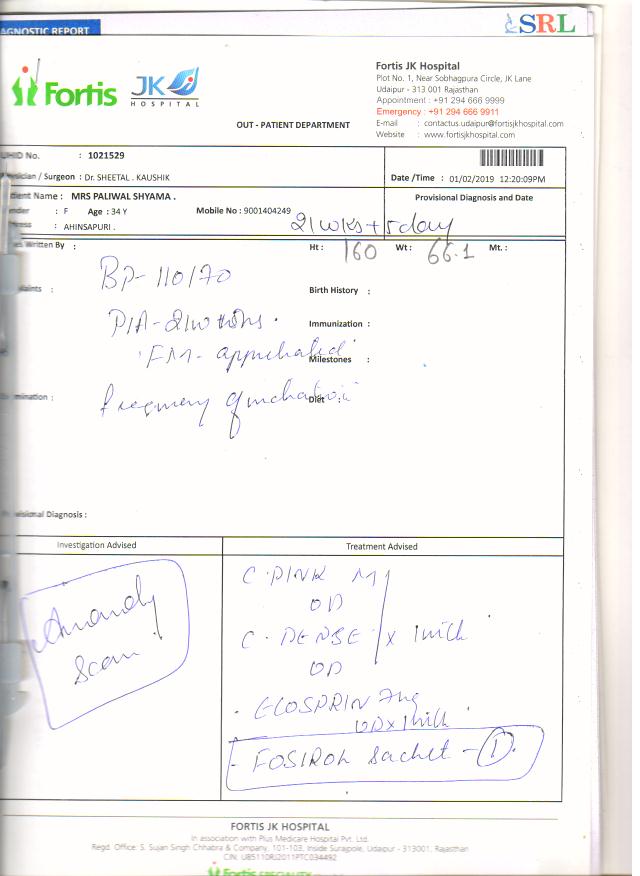 AGNOSTIC REPORT
SRL
Fortis
JK
HOSPITAL
OUT - PATIENT DEPARTMENT
Fortis JK Hospital
Plot No. 1, Near Sobhagpura Circle, JK Lane
Udaipur - 313 001 Rajasthan
Appointment : +91 294 666 9999
Emergency : +91 294 666 9911
E-mail : contactus.udaipur@fortisjkhospital.com
Website : www.fortisjkhospital.com
UHID No. : 1021529
sician / Surgeon : Dr. SHEETAL . KAUSHIK
Date /Time : 01/02/2019 12:20:09PM
ient Name : MRS PALIWAL SHYAMA .
Provisional Diagnosis and Date
nder : F Age : 34 Y Mobile No : 9001404249
ress : AHINSAPURI .
21 wks + 5 day
es Written By :
Ht : 160 Wt : 66.1 Mt. :
BP- 110/70
laints :
Birth History :
P/A -
Immunization :
FM -
Milestones :
mination :
Diet :
isional Diagnosis :
Investigation Advised
Treatment Advised
Anomaly
Scan
C. PINK M
OD
C. DENSE x 1 mth
OD
ECOSPRIN 75mg
OD x 1 mth
- FOSIROL Sachet - 1
FORTIS JK HOSPITAL
In association with Plus Medicare Hospital Pvt. Ltd.
Regd. Office: S. Sujan Singh Chhabra & Company, 101-103, Inside Surajpole, Udaipur - 313001, Rajasthan
CIN: U85110RJ2011PTC034492
Fortis